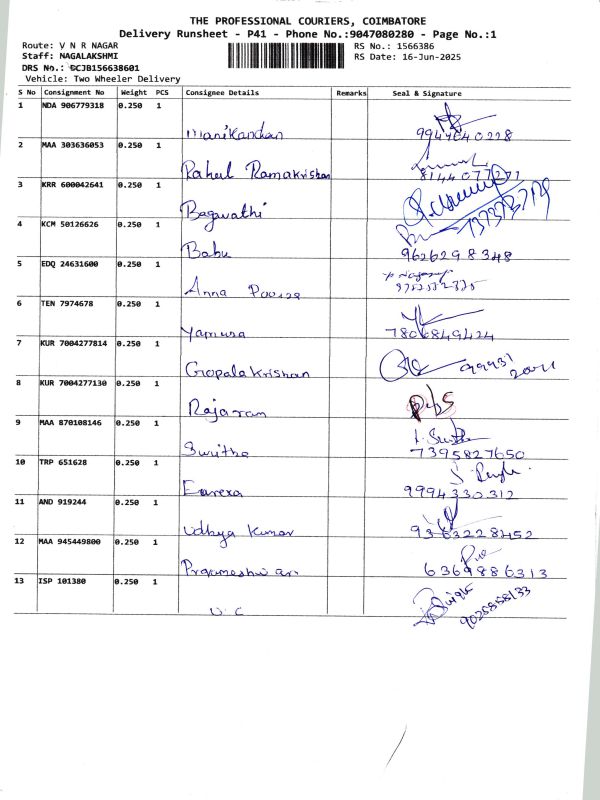 THE PROFESSIONAL COURIERS, COIMBATORE
Delivery Runsheet - P41 - Phone No.:9047080280 - Page No.:1
Route: V N R NAGAR
RS No.: 1566386
Staff: NAGALAKSHMI
RS Date: 16-Jun-2025
DRS No.: CCJB156638601
Vehicle: Two Wheeler Delivery
S No Consignment No Weight PCS Consignee Details Remarks Seal & Signature
1 NDA 906779318 0.250 1
Manikandan 9944640228
2 MAA 303636053 0.250 1
Rahul Ramakrishan 8144077277
3 KRR 600042641 0.250 1
Bagavathi
4 KCM 50126626 0.250 1
Babu 9626298348
5 EDQ 24631600 0.250 1
Anna
6 TEN 7974678 0.250 1
Yamuna 7806849424
7 KUR 7004277814 0.250 1
Gopalakrishan
8 KUR 7004277130 0.250 1
Rajaram
9 MAA 870108146 0.250 1
Switha 7395827650
10 TRP 651628 0.250 1
9994330312
11 AND 919244 0.250 1
Udhya Kumar 9363228452
12 MAA 945449800 0.250 1
6369886313
13 ISP 101380 0.250 1
9025858133